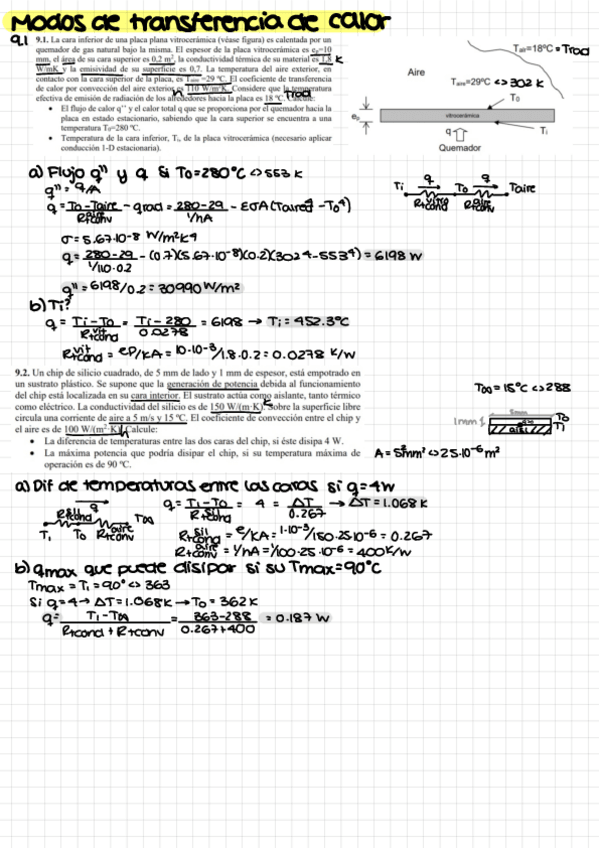 Modos de transferencia de calor
9.1 9.1. La cara inferior de una placa plana vitrocerámica (véase figura) es calentada por un
quemador de gas natural bajo la misma. El espesor de la placa vitrocerámica es eₚ=10
mm, el área de su cara superior es 0,2 m², la conductividad térmica de su material es 1,8 K
W/mK y la emisividad de su superficie es 0,7. La temperatura del aire exterior, en
contacto con la cara superior de la placa, es Taire=29 ºC. El coeficiente de transferencia
de calor por convección del aire exterior es 110 W/m²K. Considere que la temperatura
h Trad
efectiva de emisión de radiación de los alrededores hacia la placa es 18 ºC. Calcule:
• El flujo de calor q'' y el calor total q que se proporciona por el quemador hacia la
placa en estado estacionario, sabiendo que la cara superior se encuentra a una
temperatura T₀=280 ºC.
• Temperatura de la cara inferior, Tᵢ, de la placa vitrocerámica (necesario aplicar
conducción 1-D estacionaria).
=18ºC = Trad
Aire
Taire=29ºC <=> 302 K
T₀
eₚ
vitrocerámica
q
Tᵢ
Quemador
a) Flujo q'' y q si T0=280ºC <=> 553 K
q'' = q/A
q = T0-Taire/Rtconv - qrad = 280-29/1/hA - εσA(Taured⁴ - T0⁴)
σ = 5.67·10-8 W/m²K4
q = 280-29/1/110·0.2 - (0.7)(5.67·10-8)(0.2)(3024-5534) = 6198 W
q'' = 6198/0.2 = 30990 W/m²
Ti q T0 q Taire
Rtcond vitro Rtconv aire
b) Ti?
q = Ti-T0/Rtcond vit = Ti-280/0.0278 = 6198 → Ti = 452.3ºC
Rtcond vit = ep/kA = 10·10-3/1.8·0.2 = 0.0278 K/W
9.2. Un chip de silicio cuadrado, de 5 mm de lado y 1 mm de espesor, está empotrado en
un sustrato plástico. Se supone que la generación de potencia debida al funcionamiento
del chip está localizada en su cara interior. El sustrato actúa como aislante, tanto térmico
como eléctrico. La conductividad del silicio es de 150 W/(m·K). Sobre la superficie libre
K
circula una corriente de aire a 5 m/s y 15 ºC. El coeficiente de convección entre el chip y
el aire es de 100 W/(m²·K). Calcule:
h
• La diferencia de temperaturas entre las dos caras del chip, si éste disipa 4 W.
• La máxima potencia que podría disipar el chip, si su temperatura máxima de
operación es de 90 ºC.
T∞ = 15ºC <=> 288
5mm
1mm T0
Ti
aisl
A = 5²mm² <=> 25·10-6 m²
a) Dif de temperaturas entre las caras si q=4W
q
Rtcond sil T∞
Ti T0 Rtconv aire
q = Ti-T0/Rtcond sil = 4 = ΔT/0.267 → ΔT = 1.068 K
Rtcond sil = e/KA = 1·10-3/150·25·10-6 = 0.267
Rtconv aire = 1/hA = 1/100·25·10-6 = 400K/W
b) qmax que puede disipar si su Tmax=90ºC
Tmax = Ti = 90º <=> 363
Si q=4 → ΔT=1.068K → T0 = 362 K
q = Ti-T∞/Rtcond+Rtconv = 363-288/0.267+400 = 0.187 W